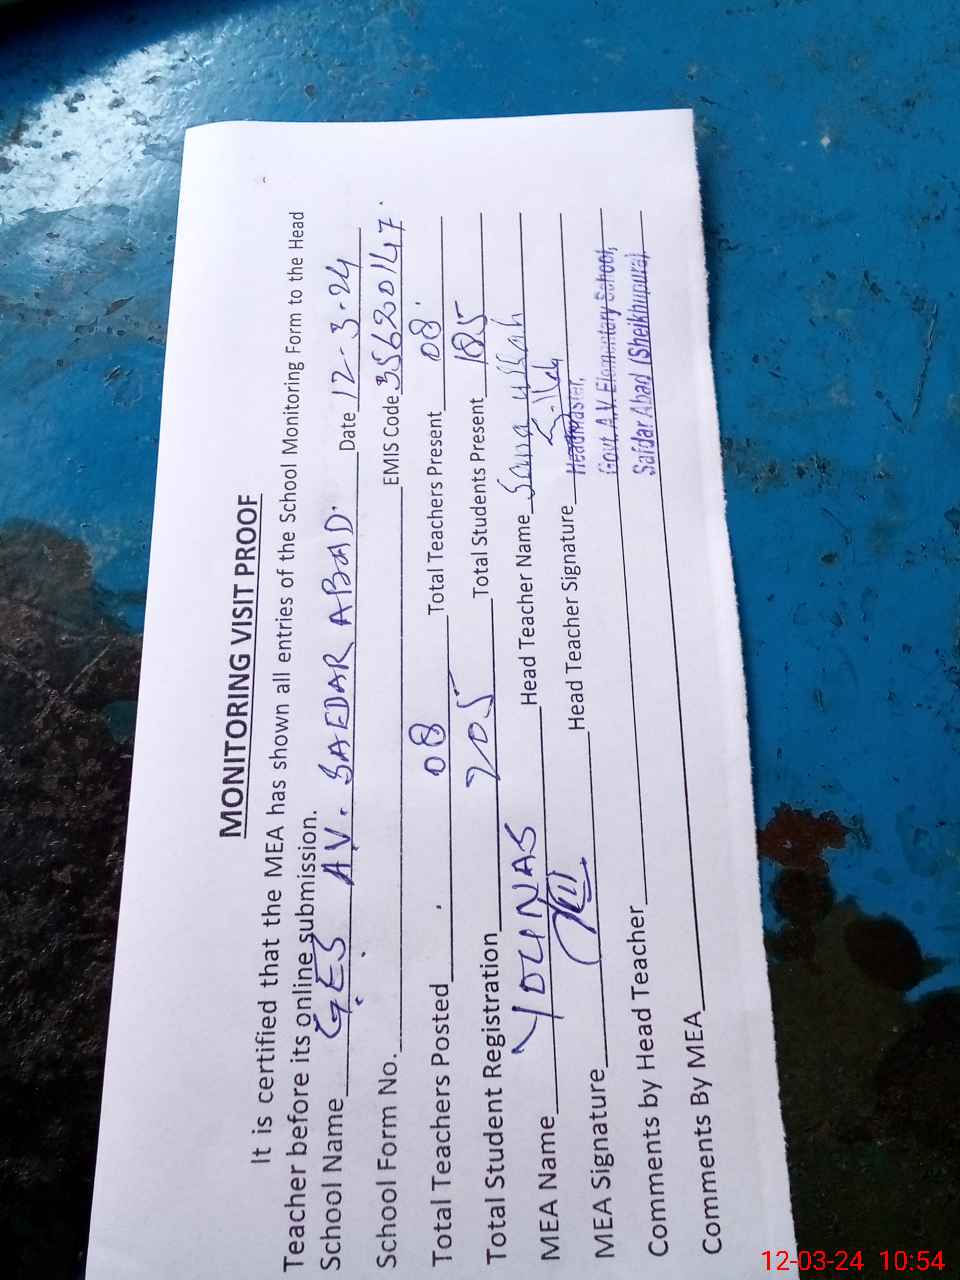 MONITORING VISIT PROOF
It is certified that the MEA has shown all entries of the School Monitoring Form to the Head
Teacher before its online submission.
School Name GES A.V. SAEDAR ABAD. Date 12-3-24
School Form No. EMIS Code 35620147
Total Teachers Posted 08 Total Teachers Present 08
Total Student Registration 205 Total Students Present 185
MEA Name YOUNAS Head Teacher Name Sana ullah
MEA Signature Head Teacher Signature
Headmaster,
Govt. A.V. Elementary School,
Saidar Abad (Sheikhupura)
Comments by Head Teacher
Comments By MEA
12-03-24 10:54